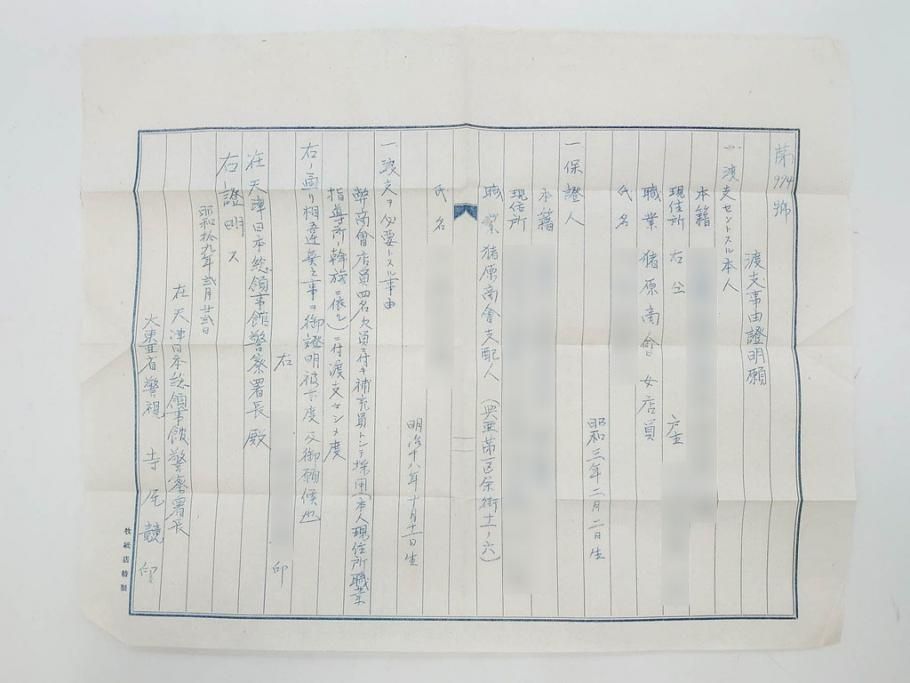 第994号
渡支事由證明願
一、渡支セントスル本人
本籍
現住所 右仝
職業 猪原商會女店員
氏名
昭和三年二月二日生
一 保證人
本籍
現住所
職業 猪原商會支配人（興亜第一區 街十一ノ六）
氏名
明治十八年十月十一日生
一 渡支ヲ必要トスル事由
弊商會店員四名欠員ニ付キ補充員トシテ採用（本人現住所職業
指導所ノ斡旋ニ依ル）ニ付渡支セシメ度
右ノ通リ相違無之事ヲ御證明被下度及御願候也
右 印
在天津日本総領事館警察署長殿
右證明ス
昭和拾九年弐月廿弐日
在天津日本総領事館警察署長
大東亜省警視 寺尾競 印
牧紙店特製